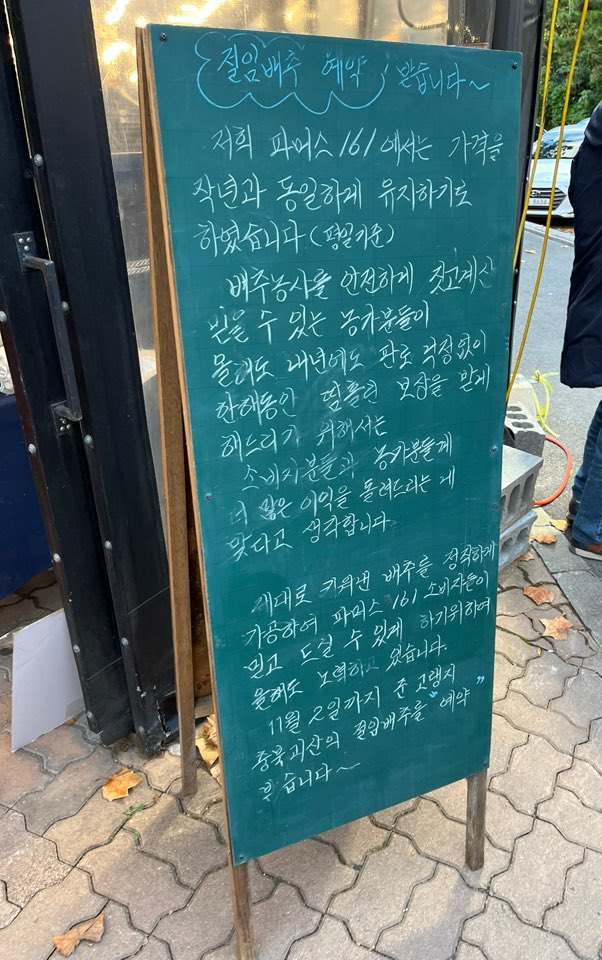 절임배추 예약 받습니다~
저희 파머스161에서는 가격을
작년과 동일하게 유지하기로
하였습니다(평일기준)
배추농사를 안전하게 짓고계신
믿을 수 있는 농가분들이
올해도 내년에도 판로 걱정없이
한해동안 땀흘린 보상을 받게
해드리기 위해서는
소비자분들과 농가분들께
더 많은 이익을 돌려드리는 게
맞다고 생각합니다
제대로 키워낸 배추를 정직하게
가공하여 파머스161 소비자들이
믿고 드실 수 있게 하기위하여
올해도 노력하고 있습니다.
11월 2일까지 준고랭지
충북괴산의 절임배추를 "예약"
습니다~